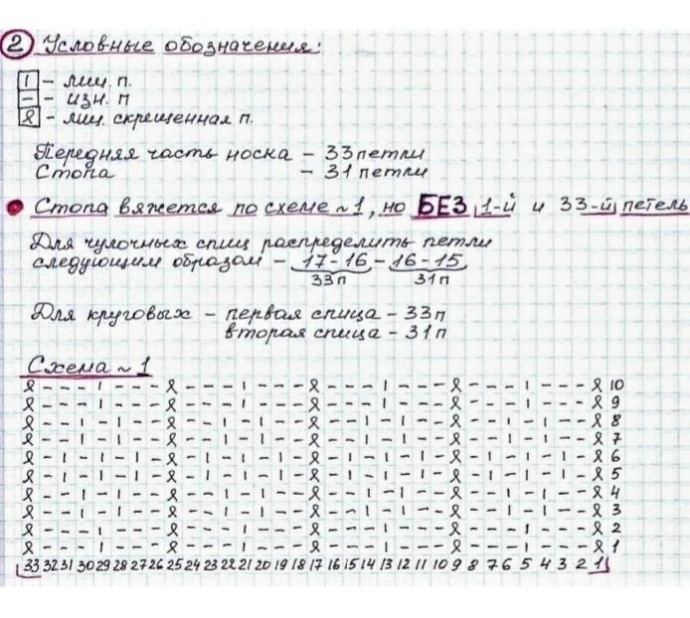 2 Условные обозначения:
I - лиц. п.
- - изн. п
Ջ - лиц. скрещенная п.
Передняя часть носка - 33 петли
Стопа - 31 петли
Стопа вяжется по схеме ~1, но БЕЗ 1-й и 33-й петель
Для чулочных спиц распределить петли
следующим образом - 17-16 - 16-15
33п 31п
Для круговых - первая спица - 33п
вторая спица - 31п
Схема ~1
Ջ - - - I - - - Ջ - - - I - - - Ջ - - - I - - - Ջ - - - I - - - Ջ 10
Ջ - - - I - - - Ջ - - - I - - - Ջ - - - I - - - Ջ - - - I - - - Ջ 9
Ջ - - I - I - - Ջ - - I - I - - Ջ - - I - I - - Ջ - - I - I - - Ջ 8
Ջ - - I - I - - Ջ - - I - I - - Ջ - - I - I - - Ջ - - I - I - - Ջ 7
Ջ - I - I - I - Ջ - I - I - I - Ջ - I - I - I - Ջ - I - I - I - Ջ 6
Ջ - I - I - I - Ջ - I - I - I - Ջ - I - I - I - Ջ - I - I - I - Ջ 5
Ջ - - I - I - - Ջ - - I - I - - Ջ - - I - I - - Ջ - - I - I - - Ջ 4
Ջ - - I - I - - Ջ - - I - I - - Ջ - - I - I - - Ջ - - I - I - - Ջ 3
Ջ - - - I - - - Ջ - - - I - - - Ջ - - - I - - - Ջ - - - I - - - Ջ 2
Ջ - - - I - - - Ջ - - - I - - - Ջ - - - I - - - Ջ - - - I - - - Ջ 1
33 32 31 30 29 28 27 26 25 24 23 22 21 20 19 18 17 16 15 14 13 12 11 10 9 8 7 6 5 4 3 2 1